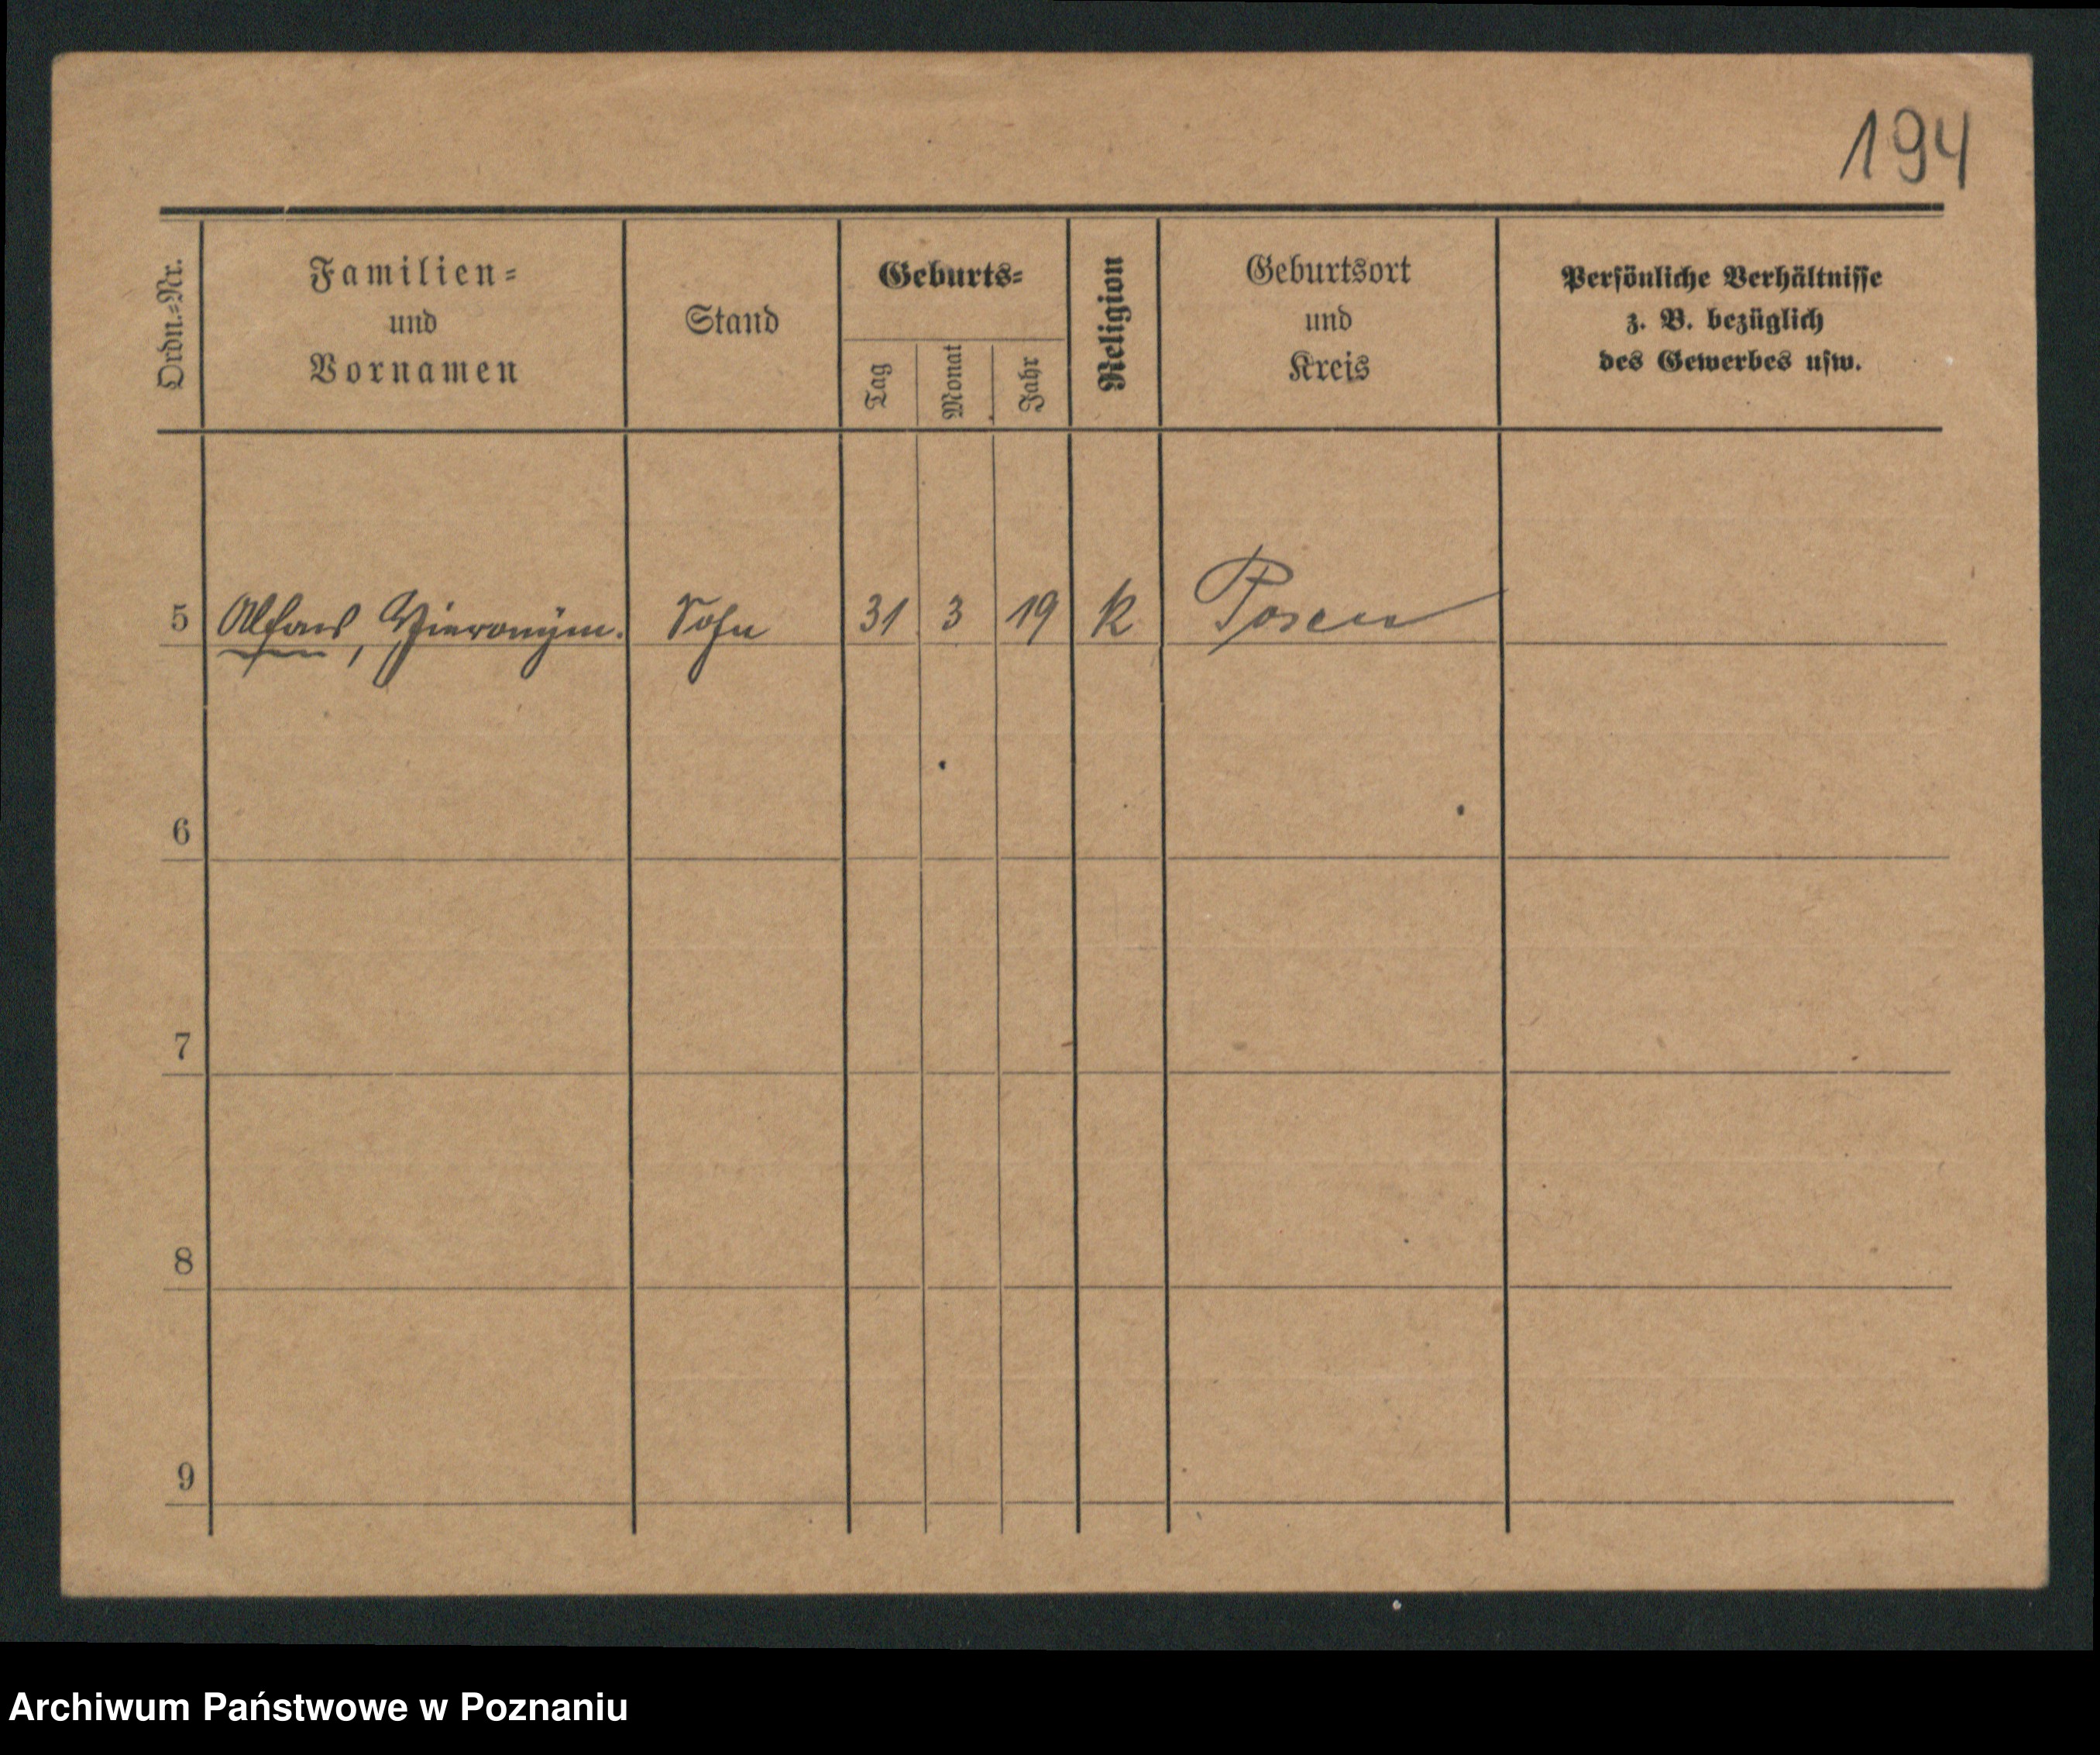 194
Ordn.-Nr.
Familien-
und
Vornamen
Stand
Geburts-
Tag
Monat
Jahr
Religion
Geburtsort
und
Kreis
Persönliche Verhältnisse
z. B. bezüglich
des Gewerbes usw.
5 Alfons, Hieronÿm. Sohn 31 3 19 k Posen
6
7
8
9
Archiwum Państwowe w Poznaniu